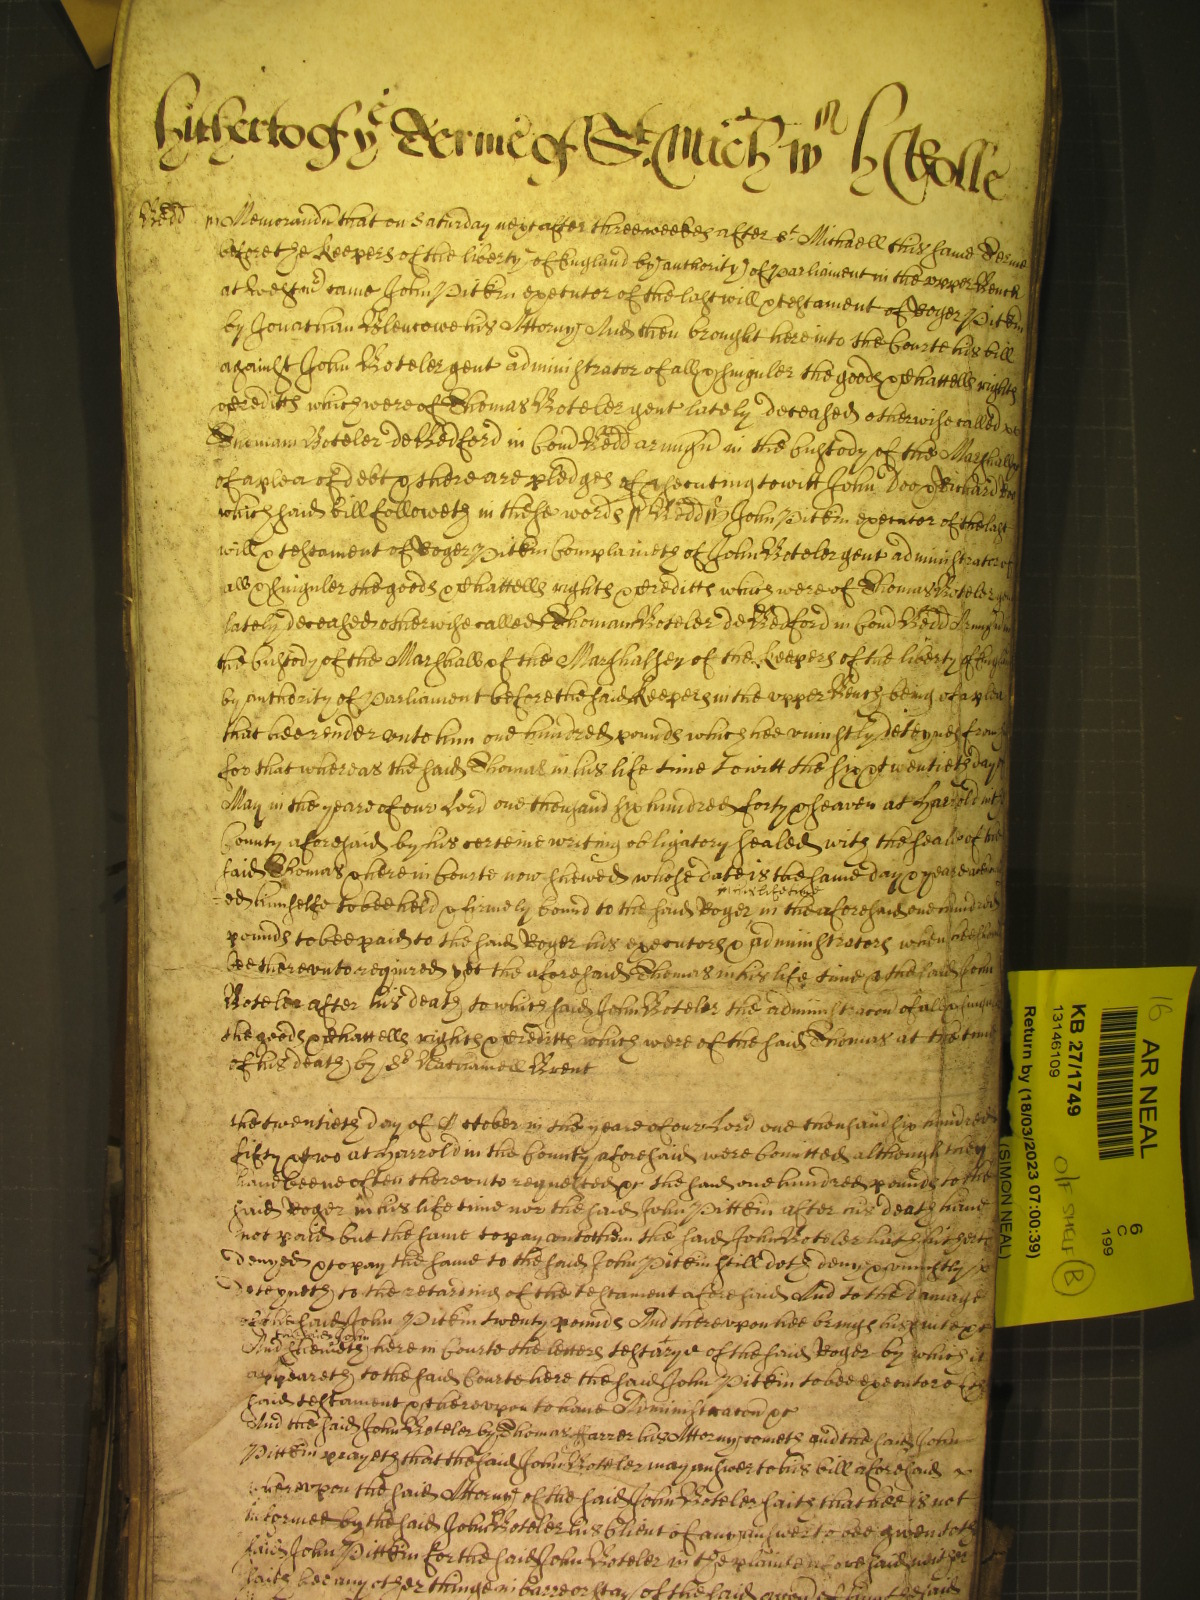 Hitherto of ye Terme of St. Mich wth
Bedd Memorandu that on Saturday next after three weekes after St Michaell this same Terme
before the Keepers of the liberty of England by authority of Parliament in the upper Bench
at Westmr came John Pitkin executor of the last will & testament of Roger Pitkin
by Jonathan Blencowe his Attorny And then brought here into the Courte his bill
against John Boteler gent administrator of all & singuler the goods & Chattells rights
& creditts which were of Thomas Boteler gent lately deceased otherwise called
Thomam Boteler de Bedford in Com Bedd armigu in the Custody of the Marshall
of a plea of debt & there are pledges of prsecuting to witt John Doo & Richard Roo
which said bill followeth in these words // Bedd // John Pitkin executor of the last
will & testament of Roger Pitkin Complaineth of John Boteler gent administrator of
all & singuler the goods & Chattells rights & creditts which were of Thomas Boteler gent
lately deceased otherwise called Thomam Boteler de Bedford in Com Bedd
the Custody of the Marshall of the Marshalsey of the Keepers of the liberty of England
by authority of Parliament before the said Keepers in the upper Bench being of a plea
that hee render unto him one hundred pounds which hee uniustly deteyneth from
for that whereas the said Thomas in his life time to witt the six & twentieth day
May in the yeare of our Lord one thousand six hundred forty & seaven at Harrold in the
County aforesaid by his certeine writing obligatory sealed with the seale of the
said Thomas & here in Courte now shewed whose date is the same day & yeare
in his life time
ed himselfe to bee held & firmely bound to the said Roger in the aforesaid one hundred
pounds to bee paid to the said Roger his executors & administrators when
bee thereunto required yet the aforesaid Thomas in his life time & the said John
Boteler after his death to which said John Boteler the administracon of all & singuler
the goods & Chattells rights & creditts which were of the said Thomas at the time
of his death by Sr Nathaniell Brent
the twentieth day of October in the yeare of our Lord one thousand six hundred
fifty & two at Harrold in the County aforesaid were Comitted although they
have beene often thereunto requested &c the said one hundred pounds to the
said Roger in his life time nor the said John Pittkin after his death have
not paid but the same to pay unto them the said John Boteler hath hitherto
denyed & to pay the same to the said John Pitkin still doth deny & uniustly
deteyneth to the retarding of the testament aforesaid And to the damage
of the said John Pitkin twenty pounds And thereupon hee brings his suite &c
the said John
And sheweth here in Courte the letters testarye of the said Roger by which it
appeareth to the said Courte here the said John Pitkin to bee executor of the
said testament & thereupon to have Administracon &c
And the said John Boteler by Thomas Farrer his Attorny cometh and the said John
Pittkin prayeth that the said John Boteler may answer to his bill aforesaid &c
whereupon the said Attorny of the said John Boteler saith that hee is not
informed by the said John Boteler his Client of any answer to bee given to the
said John Pittkin for the said John Boteler in the plainte aforesaid neither
saith hee any other thinge in barre or stay of the said accon of him the said
16
AR NEAL
KB 27/1749
13146109
Return by (18/03/2023 07:00:39)
(SIMON NEAL)
6
C
199
O/F SHELF B